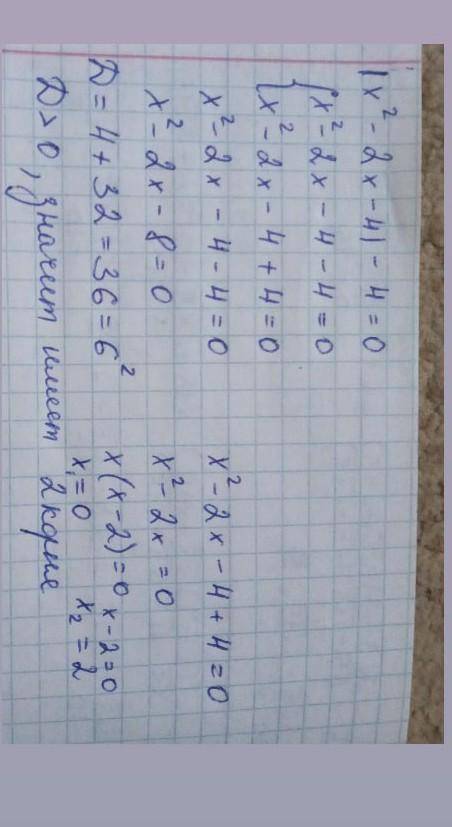 |x² - 2x - 4| - 4 = 0
{x² - 2x - 4 - 4 = 0
{x² - 2x - 4 + 4 = 0
x² - 2x - 4 - 4 = 0
x² - 2x - 8 = 0
D = 4 + 32 = 36 = 6²
D > 0, значит имеет 2 корня
x² - 2x - 4 + 4 = 0
x² - 2x = 0
x(x - 2) = 0 x - 2 = 0
x₁ = 0 x₂ = 2